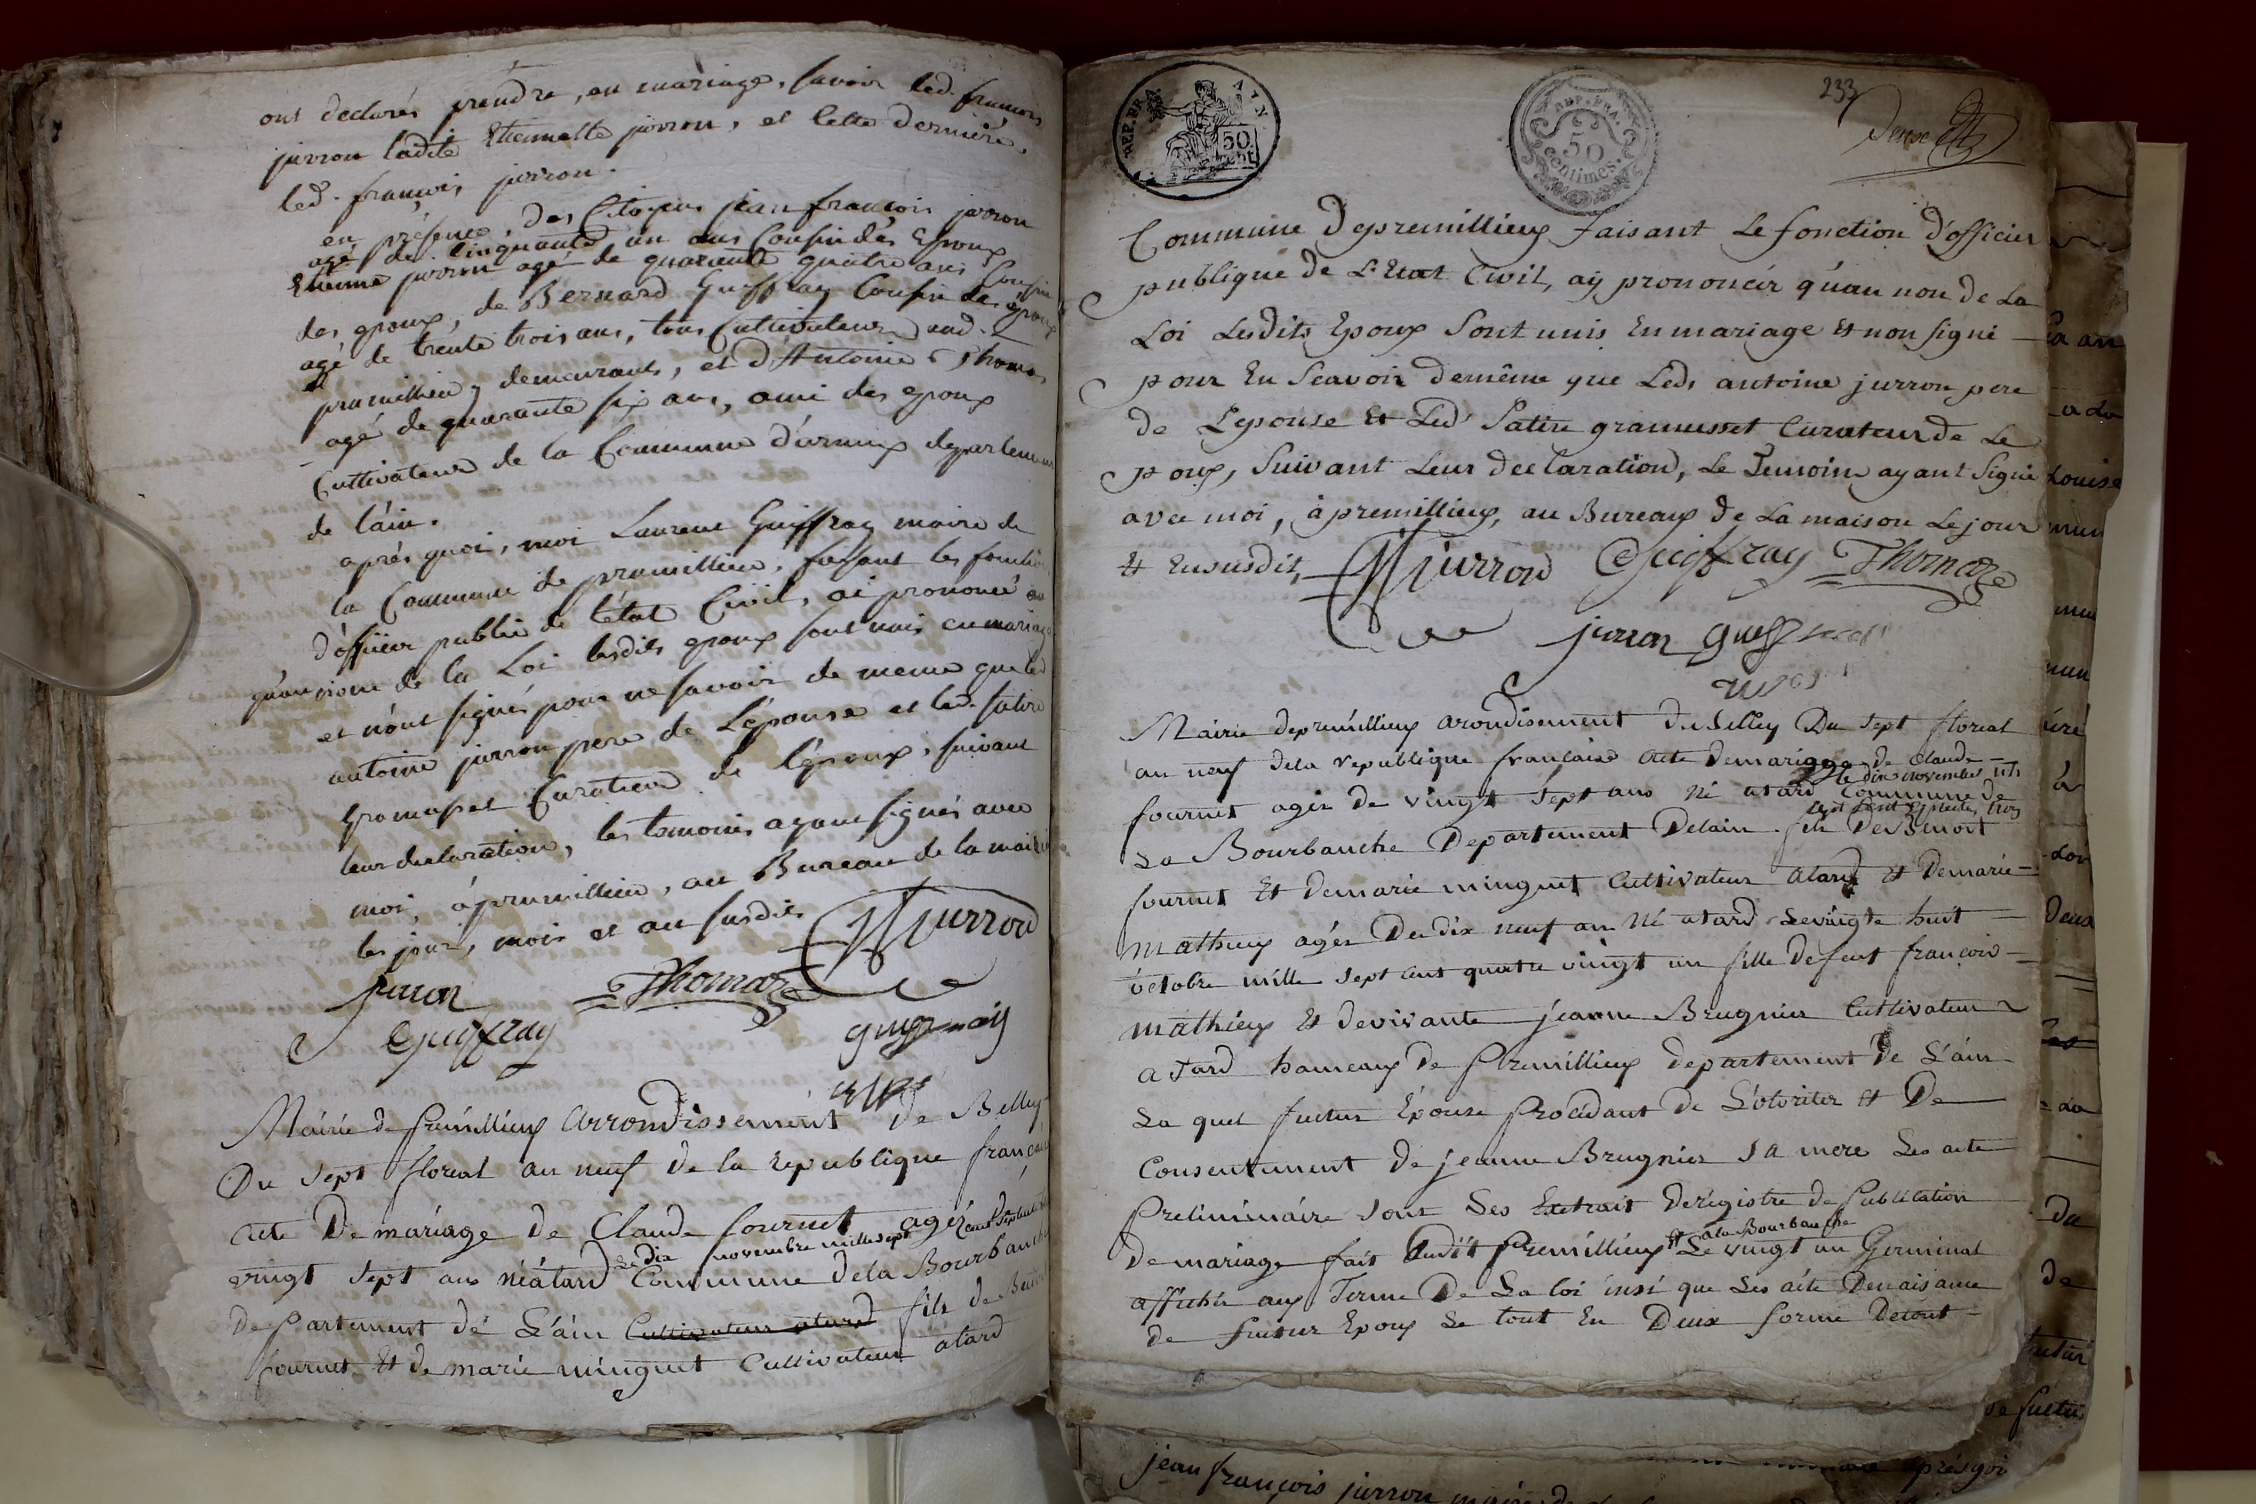 ont declarés prendre, en mariage, savoir led. françois
jurron ladite Etiennette jurron, et cette derniere,
led. françois jurron.
en présence, des Citoyens jean françois jurron
agé de Cinquante un ans Cousin des Epoux
Etienne jurron agé de quarante quatre ans Cousin
des epoux, de Bernard Guiffray Cousin des epoux
agé de trente trois ans, tous Cultivateurs aud.
premillieu y demeurants, et d'Antoine Thomas
agé de quarante six ans, ami des epoux
Cultivateur de la Commune d'armix departement
de l'ain.
aprés quoi, moi Laurent Guiffray maire de
la Commune de premillieu, faisant les fonctions
d'officier public de l'état Civil, ai prononcé
qu'au nom de la Loi lesdits epoux sont unis en mariage
et n'ont signés pour ne savoir de meme que led
antoine jurron pere de l'épouse et led. Satire
Gramusset Curateur de l'époux, suivant
leur declaration, les temoins ayant signés avec
moi, à premillieu, au Bureau de la maison
les jour, mois et an susdits
jurron
juron Thomas
Guiffray
Mairie de Premillieux arrondissement de Belley
Du sept floreal an neuf de la republique française
acte De mariage de Claude fournet agéz
Le dix novembre mille sept cent septante
vingt sept ans né à tard Commune de la Bourbanche
departement de L'ain Cultivateur a tard fils de Benoit
fournet Et de marie minguet Cultivateur a tard
REP. FRA. AIN.
50 cent
REP. FRA.
50
centimes.
233
Commune de premillieux faisant Le fonction d'officier
publique de L'Etat Civil, aÿ prononcéz qu'au non de La
Loi Lesdits Epoux Sont unis En mariage Et non signé
pour En Scavoir demême que Leds antoine jurron pere
de L'epouse Et Led Satire gramusset Curateur de Le
poux, Suivant Leur declaration, Le Temoins ayant Signé
avec moi, à premillieux, au Bureaux de La maison Le jour
Et En susdits, jurron Guiffray Thomas
juron
Mairie de premillieux arondisement de Belley Du sept floreal
an neuf de la republique francaise acte de mariage de Claude
le dix novembre
fournet agéz de vingt sept ans né a tard Commune de
sept cent septante trois
La Bourbanche Departement Delain fils De Benoit
fournet Et demarie minguet Cultivateur a tard Et Demarie
mathieux agéz De dix neuf an né a tard Le vingte huit
octobre mille sept cent quatre vingt un fille defeut françois
mathieux Et devivante jeanne Brugnier Cultivateur
a Tard hameaux de Premillieux departement de L'ain
La quel futur Épouse Procedant de L'otoritez Et De
Consentement de jeanne Brugnier sa mere Les acte
Preliminaire sont Les Extrait de régistre de Publication
Et a la Bourbanche
de mariage fait Audit Premillieux Le vingt un Germinal
affichéz aux Terme De La loi insi que Les acte Denaisance
de futur Epoux Le tout En Deux forme Detout
jean françois jurron